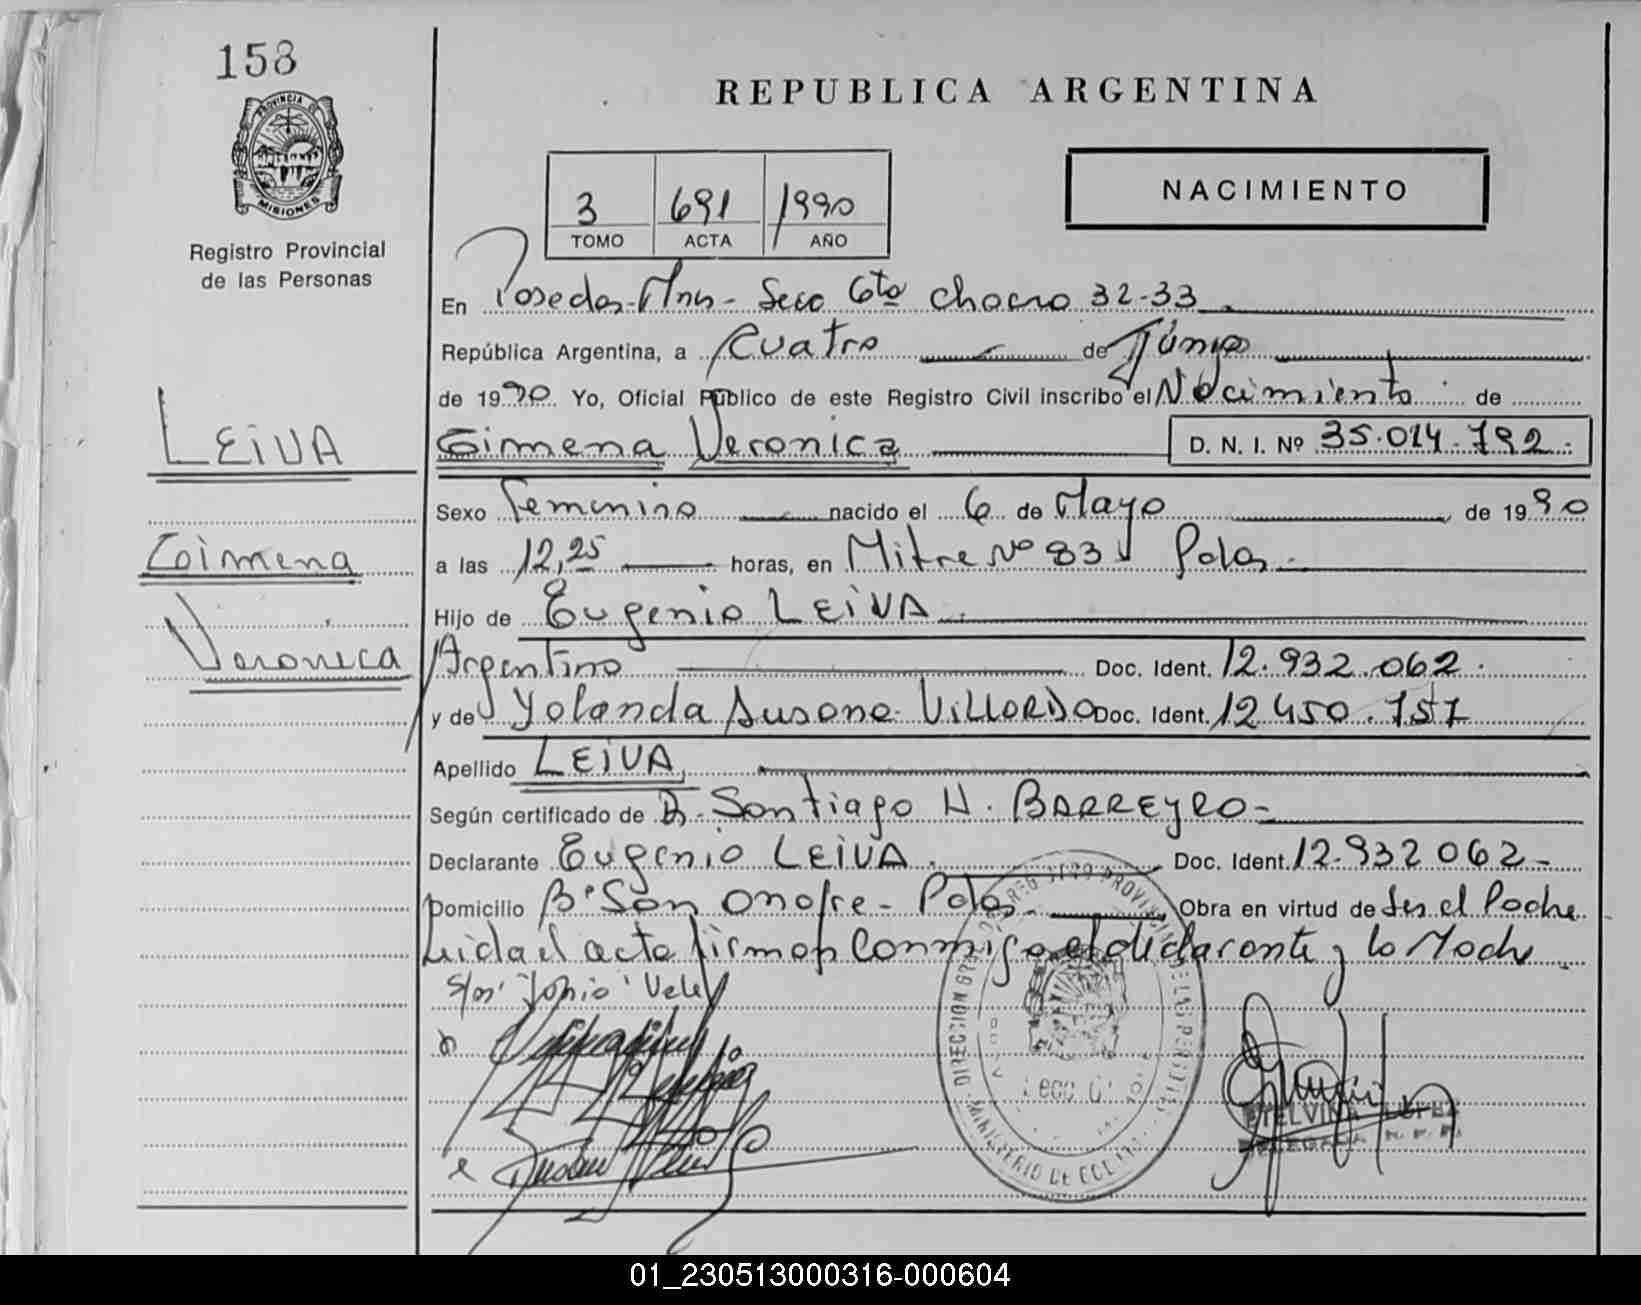 158
REPUBLICA ARGENTINA
PROVINCIA DE
MISIONES
Registro Provincial
de las Personas
3 691 1990
TOMO ACTA AÑO
NACIMIENTO
En Posadas-Mns- Secc 6ta chacra 32-33
República Argentina, a Cuatro de Junio
de 1990. Yo, Oficial Público de este Registro Civil inscribo el Nacimiento de
Gimena Veronica D. N. I. Nº 35.014.792.
Sexo Femenino nacido el 6 de Mayo de 1990
a las 12,25 horas, en Mitre Nº 83 Pdas.
Hijo de Eugenio LEIVA.
Argentino Doc. Ident. 12.932.062.
y de Yolanda Susana VILLORDO Doc. Ident. 12.450.757
Apellido LEIVA
Según certificado de Dr. Santiago H. BARREYRO-
Declarante Eugenio LEIVA. Doc. Ident. 12.932 062-
Domicilio Bº San Onofre - Pdas. Obra en virtud de Ser el Padre
Leida el acta firman conmigo el declarante y la Madre
S/as' Vale
LEIVA
Gimena
Veronica
ETELVINA LOPEZ
DELEGADA R. P. P.
01_230513000316-000604